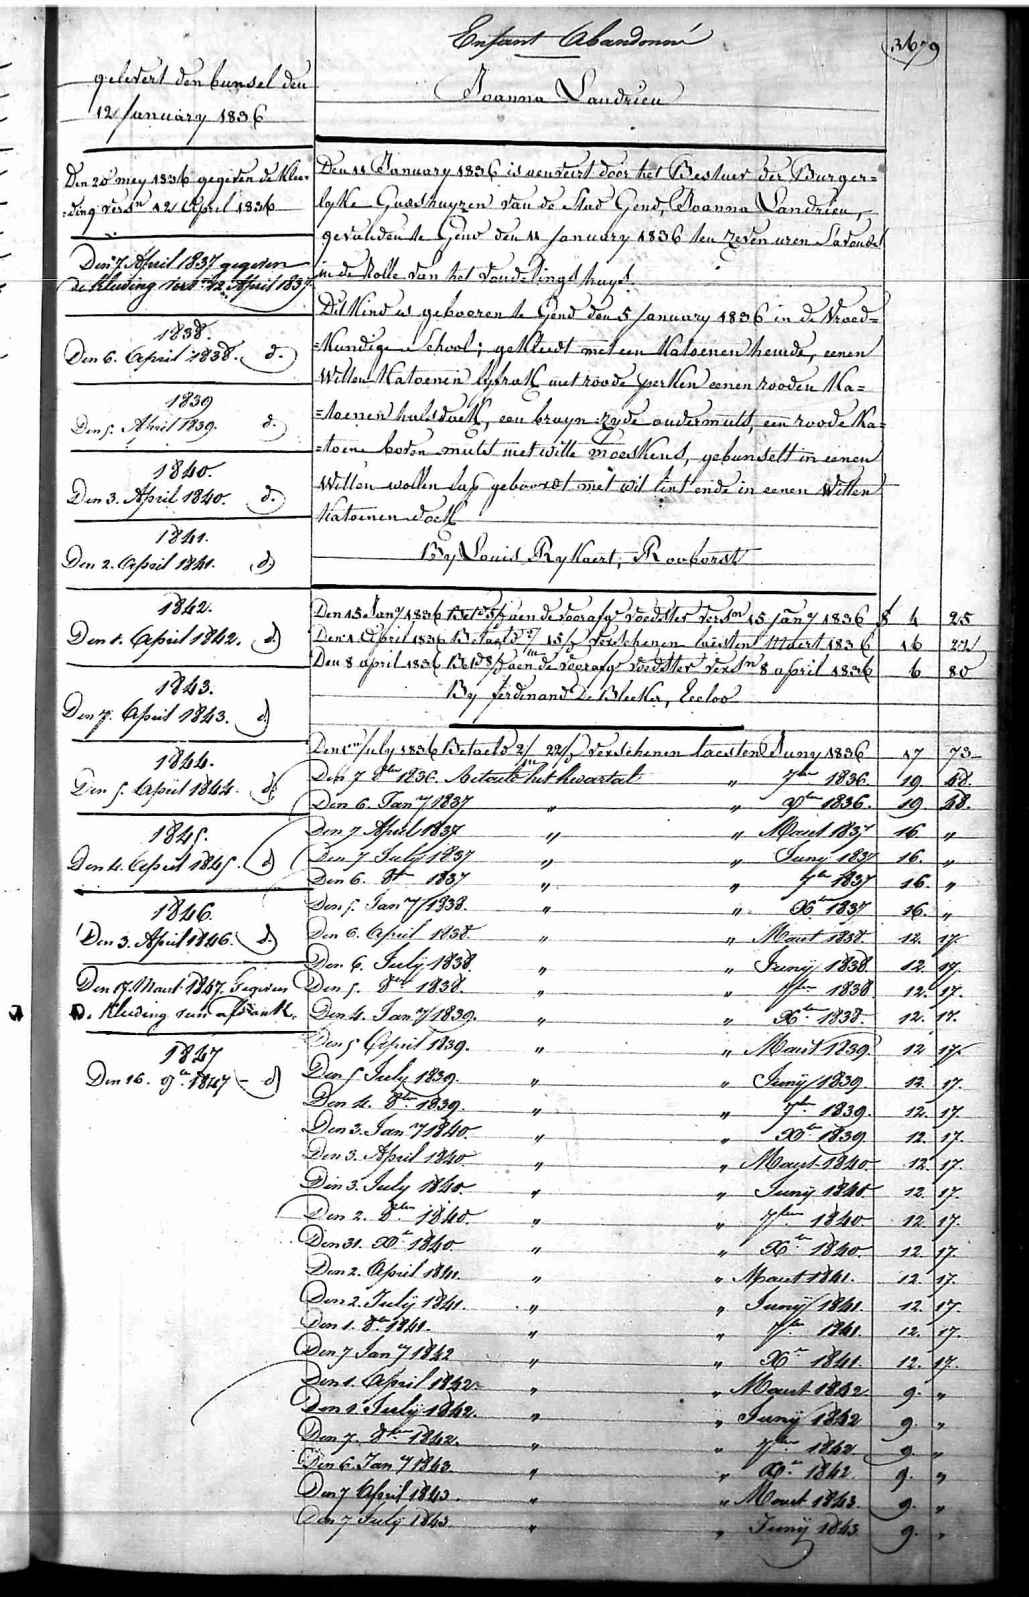 Enfant Abandonné
Joanna Landrieu
gelevert den bunsel den
12 January 1836
Den 20 mey 1836 gegeven de klee=
=ding versn 12 April 1836
Den 7 April 1837 gegeven
de kleeding versn 12 April 1837
1838.
Den 6. April 1838. d.
1839
Den 5. April 1839. d.
1840.
Den 3. April 1840. d.
1841.
Den 2. April 1841. d
1842.
Den 1. April 1842. d
1843.
Den 7. April 1843. d
1844.
Den 5. April 1844. d.
1845.
Den 4. April 1845. d
1846.
Den 3. April 1846. d.
Den 17. Maart 1847. Gegeven
de kleeding
1847
Den 16. 9br 1847 - d
Den 11 January 1836 is door het Bestuer der Burger=
lyke Gasthuyzen van de Stad Gend, Joanna Landrieu,
gevonden te Gend den 11 January 1836 ten zeven uren s'avonds
in de Rolle van het vondelingshuys.
Dit Kind is gebooren te Gend den 5 January 1836 in de Vroed=
=kundige School; gekleedt met een katoenen hemde, eenen
Witten Katoenen lyfrok met roode perken eenen rooden Ka=
=toenen halsdoek, een bruyn zyde ondermuts, een roode Ka=
=toene boven muts met witte moeskens, gebunselt in eenen
Witten wollen lap geboord met wit lint ende in eenen Witten
Katoenen doek
By Louis Rykaert, Rooborst
Den 15 Jany 1836 aen de voorafge voedster versn 15 jany 1836 f 4 25
Den 1 April 1836 Betaeld verschenen laesten Maert 1836 16
Den 8 april 1836 aen de voorafge voedster versn 8 april 1836 6 80
By ferdinand De Bleeker, Eecloo
Den 1en July 1836 Betaeld verschenen laesten Juny 1836 17 73
Den 7 8ber 1836. betaeld het kwartal " 7ber 1836 19. 48.
Den 6. Jany 1837 " " Xber 1836. 19. 48.
Den 7 April 1837 " " Maart 1837 16. "
Den 7 July 1837 " " Juny 1837 16. "
Den 6. 8br 1837 " " 7br 1837 16. "
Den 5. Jany 1838. " " Xbr 1837 16. "
Den 6. April 1838 " " Maart 1838. 12. 17.
Den 6. July 1838. " " Juny 1838. 12. 17.
Den 5. 8ber 1838. " " 7ber 1838 12. 17.
Den 4. Jany 1839. " " Xbr 1838. 12. 17.
Den 5 April 1839. " " Maart 1839. 12 17.
Den 5 July 1839. " " Juny 1839. 12. 17.
Den 4. 8ber 1839. " " 7br 1839. 12. 17.
Den 3. Jany 1840. " " Xbr 1839 12. 17.
Den 3. April 1840. " " Maart 1840. 12. 17.
Den 3. July 1840. " " Juny 1840 12. 17.
Den 2. 8ber 1840. " " 7ber 1840 12. 17.
Den 31. Xbr 1840. " " Xbr 1840. 12 17.
Den 2. April 1841. " " Maart 1841. 12. 17.
Den 2. July 1841. " " Juny 1841 12. 17.
Den 1. 8br 1841. " " 7br 1841 12. 17.
Den 7 Jany 1842 " " Xbr 1841. 12. 17.
Den 1. April 1842. " " Maart 1842 9. "
Den 1 July 1842. " " Juny 1842 9. "
Den 7. 8br 1842. " " 7br 1842 9. "
Den 6. Jany 1843 " " Xbr 1842. 9. "
Den 7 April 1843. " " Maart 1843. 9. "
Den 7 July 1843. " " Juny 1843 9. "